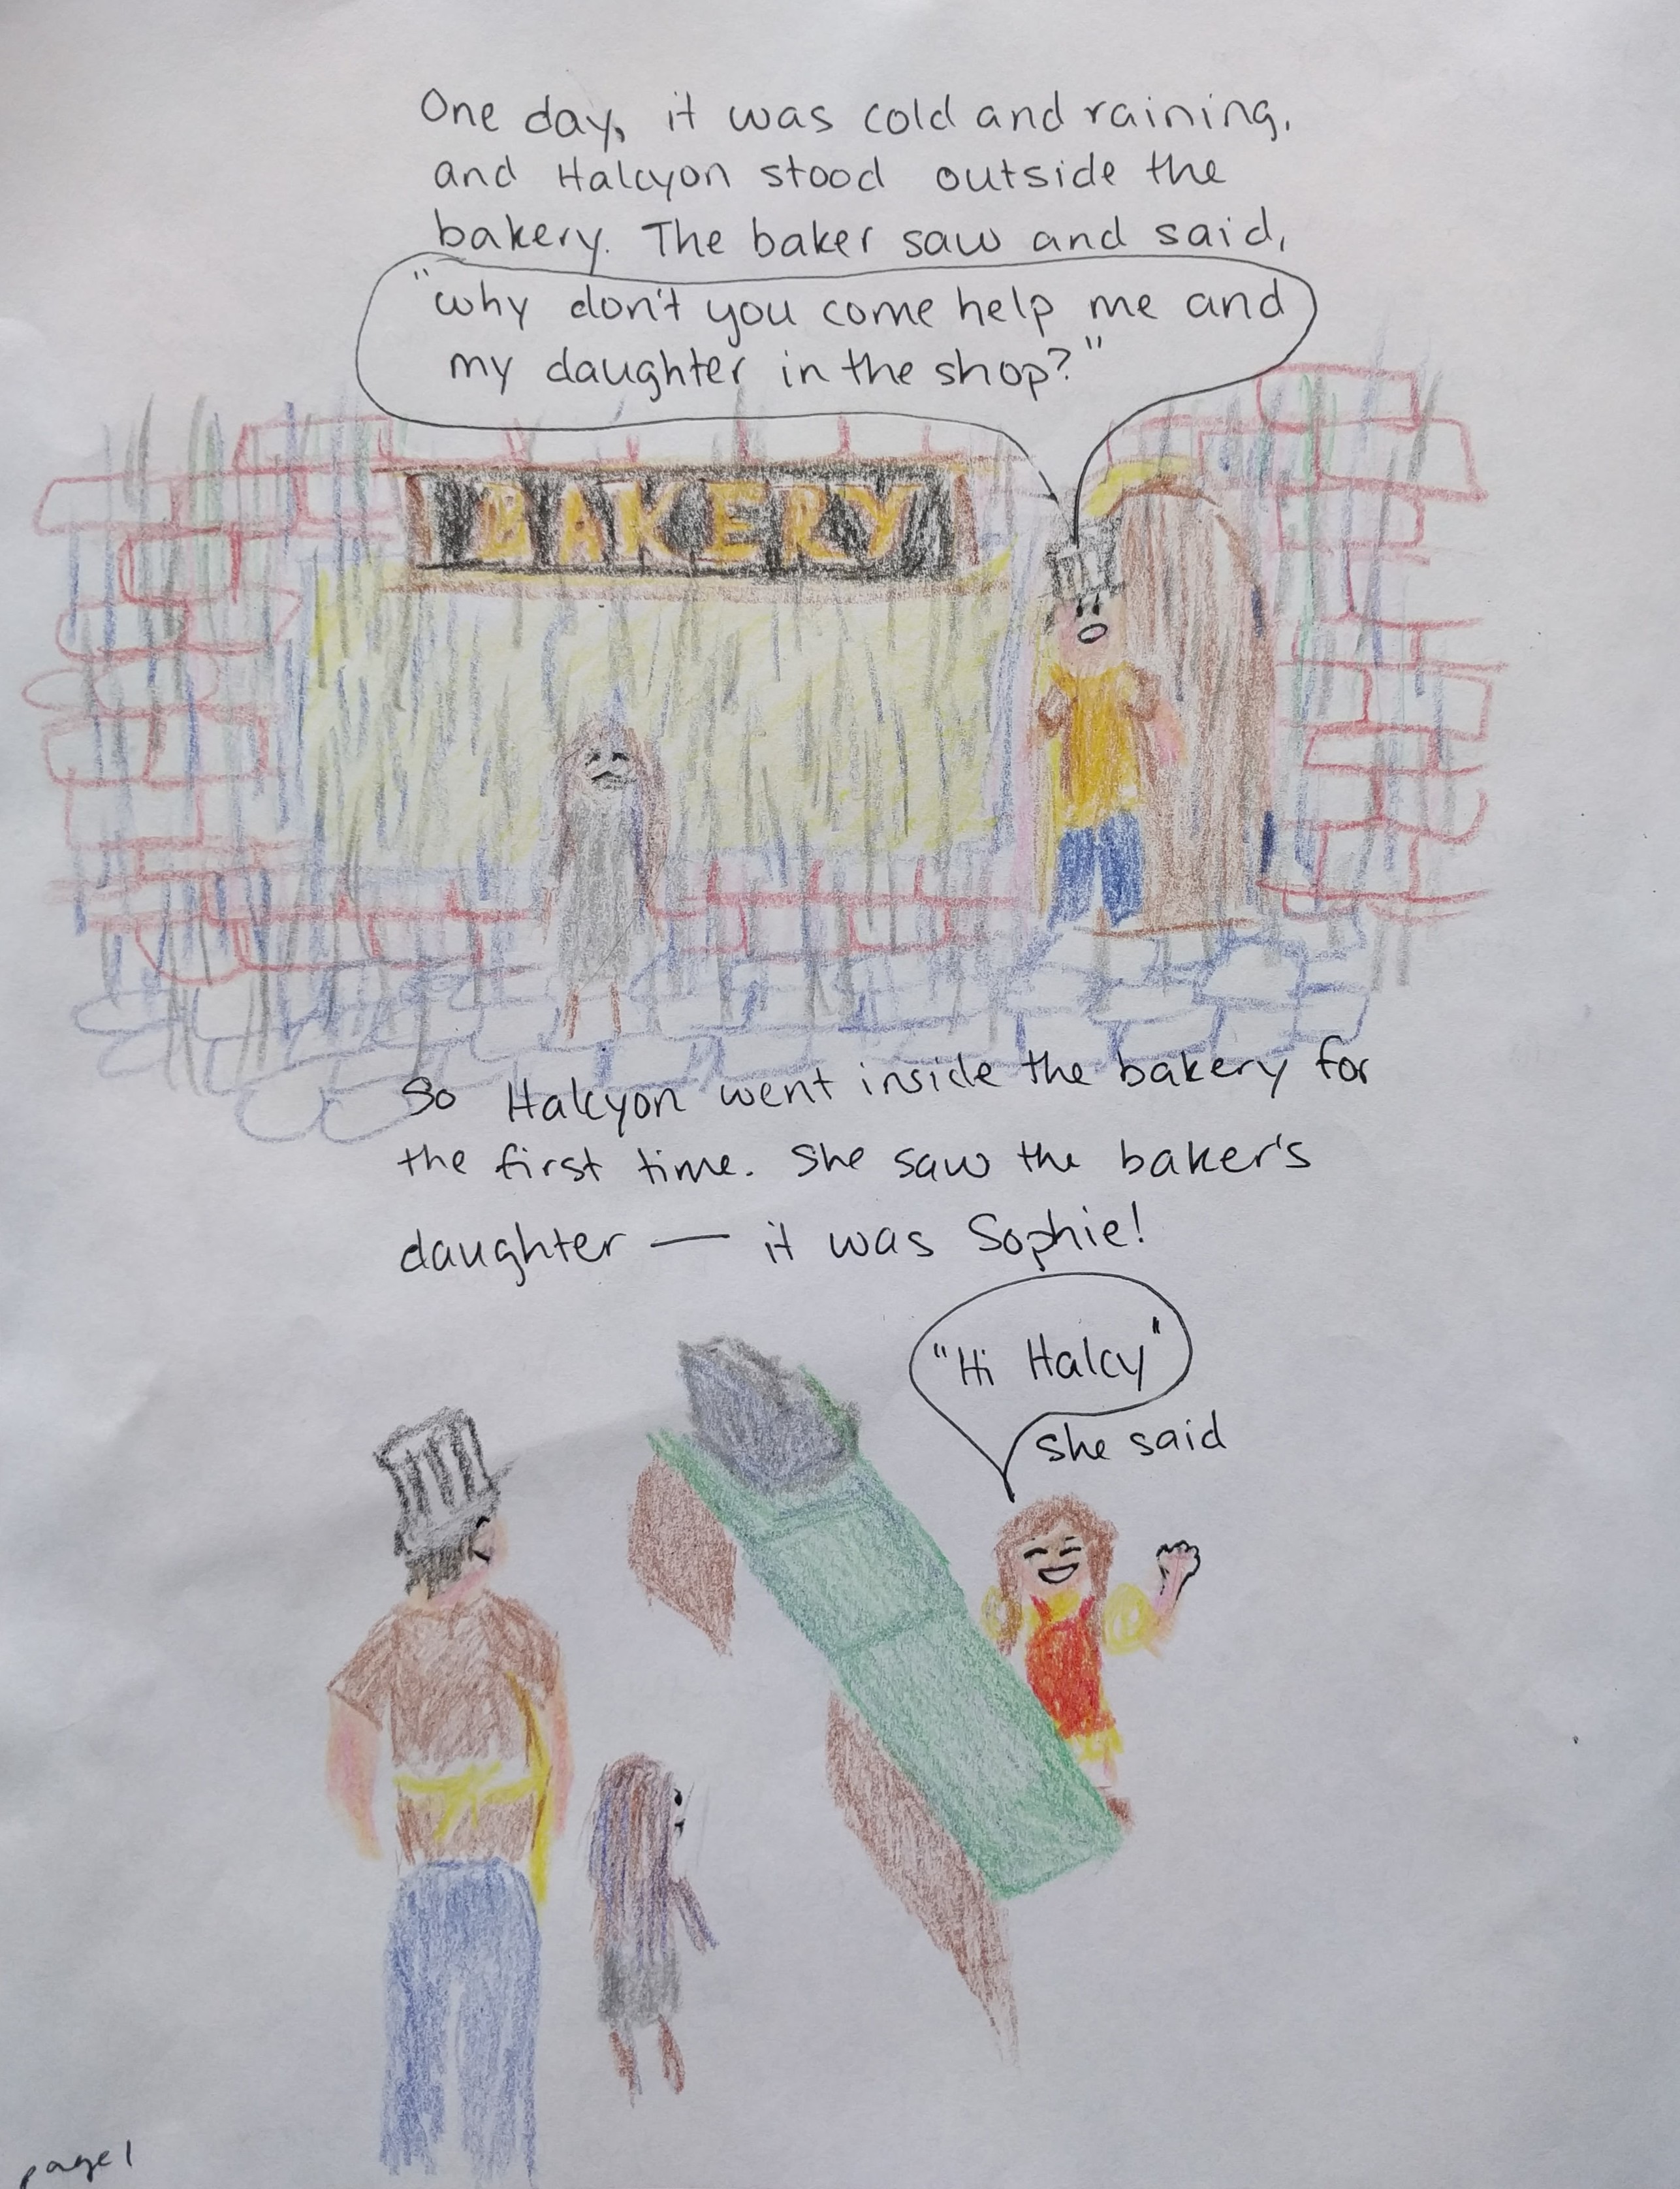 One day, it was cold and raining,
and Halcyon stood outside the
bakery. The baker saw and said,
"why don't you come help me and
my daughter in the shop?"
BAKERY
So Halcyon went inside the bakery for
the first time. She saw the baker's
daughter — it was Sophie!
"Hi Halcy"
she said
page 1